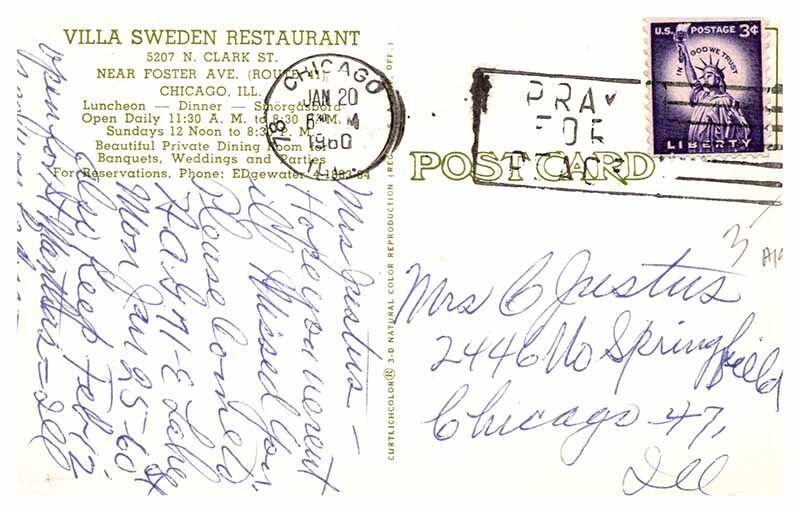 VILLA SWEDEN RESTAURANT
5207 N. CLARK ST.
NEAR FOSTER AVE. (ROUTE 41)
CHICAGO, ILL.
Luncheon — Dinner — Smörgasbord
Open Daily 11:30 A. M. to 8:30 P. M.
Sundays 12 Noon to 8:30 P. M.
Beautiful Private Dining Room for
Banquets, Weddings and Parties
For Reservations, Phone: EDgewater
CHICAGO
JAN 20
6 PM
1960
ILL.
PRAY
FOR
PEACE
U.S. POSTAGE 3¢
IN GOD WE TRUST
LIBERTY
POST CARD
CURTEICHCOLOR® 3-D NATURAL COLOR REPRODUCTION (REG. U.S.A. PAT. OFF.)
Mrs Justus –
Hope you werent
ill Missed you.
Please Come to
71 E Lake
Mon Jan 25–60
Also keep Feb 12
open for St
3
Mrs C Justus
2446 No Springfield
Chicago 47,
Ill